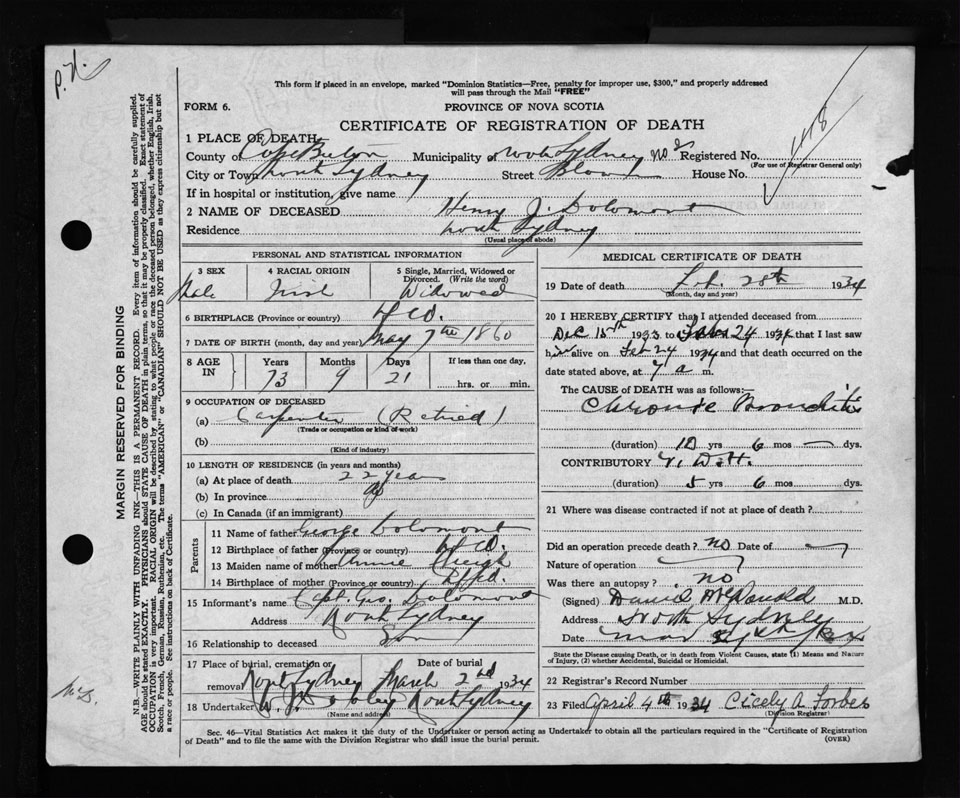 P.H.
This form if placed in an envelope, marked "Dominion Statistics—Free, penalty for improper use, $300," and properly addressed
will pass through the Mail "FREE"
FORM 6.
PROVINCE OF NOVA SCOTIA
CERTIFICATE OF REGISTRATION OF DEATH
1 PLACE OF DEATH
County of Cape Breton Municipality of North Sydney No 2 Registered No.
(For use of Registrar General only)
City or Town North Sydney Street House No.
If in hospital or institution, give name
2 NAME OF DECEASED Henry J. Dolomont
Residence North Sydney
(Usual place of abode)
PERSONAL AND STATISTICAL INFORMATION
3 SEX 4 RACIAL ORIGIN 5 Single, Married, Widowed or Divorced. (Write the word)
Male Irish Widowed
6 BIRTHPLACE (Province or country) Nfld.
7 DATE OF BIRTH (month, day and year) May 7th 1860
8 AGE IN Years Months Days If less than one day,
73 9 21 hrs. or min.
9 OCCUPATION OF DECEASED
(a) Carpenter (Retired)
(Trade or occupation or kind of work)
(b)
(Kind of industry)
10 LENGTH OF RESIDENCE (in years and months)
(a) At place of death 22 years
(b) In province
(c) In Canada (if an immigrant)
Parents
11 Name of father George Dolomont
12 Birthplace of father (Province or country) Nfld.
13 Maiden name of mother Annie
14 Birthplace of mother (Province or country) Nfld.
15 Informant's name Capt. Geo. Dolomont
Address North Sydney
16 Relationship to deceased Son
17 Place of burial, cremation or removal North Sydney Date of burial March 2nd 1934
18 Undertaker North Sydney
(Name and address)
MEDICAL CERTIFICATE OF DEATH
19 Date of death Feb. 28th 1934
(Month, day and year)
20 I HEREBY CERTIFY that I attended deceased from
Dec 15th 1933 to Feb 24 1934 that I last saw
him alive on Feb 24 1934 and that death occurred on the
date stated above, at 7 a m.
The CAUSE OF DEATH was as follows:—
Chronic Bronchitis
(duration) 10 yrs 6 mos — dys.
CONTRIBUTORY
(duration) 5 yrs 6 mos dys.
21 Where was disease contracted if not at place of death?
Did an operation precede death? no Date of
Nature of operation
Was there an autopsy? no
(Signed) Daniel McDonald M.D.
Address North Sydney
Date
State the Disease causing Death, or in death from Violent Causes, state (1) Means and Nature
of Injury, (2) whether Accidental, Suicidal or Homicidal.
22 Registrar's Record Number
23 Filed April 4th 1934 Cicely A Forbes
(Division Registrar)
Sec. 46—Vital Statistics Act makes it the duty of the Undertaker or person acting as Undertaker to obtain all the particulars required in the "Certificate of Registration
of Death" and to file the same with the Division Registrar who shall issue the burial permit.
(OVER)
MARGIN RESERVED FOR BINDING
N.B.—WRITE PLAINLY WITH UNFADING INK—THIS IS A PERMANENT RECORD. Every item of information should be carefully supplied.
AGE should be stated EXACTLY. PHYSICIANS should STATE CAUSE OF DEATH in plain terms, so that it may be properly classified. Exact statement of
OCCUPATION is very important. RACIAL ORIGIN will be described by stating to what people or race the deceased person belonged, whether English, Irish,
Scotch, French, German, Russian, Ruthenian, etc. The terms "AMERICAN" or "CANADIAN" SHOULD NOT BE USED as they express citizenship but not
a race or people. See instructions on back of Certificate.